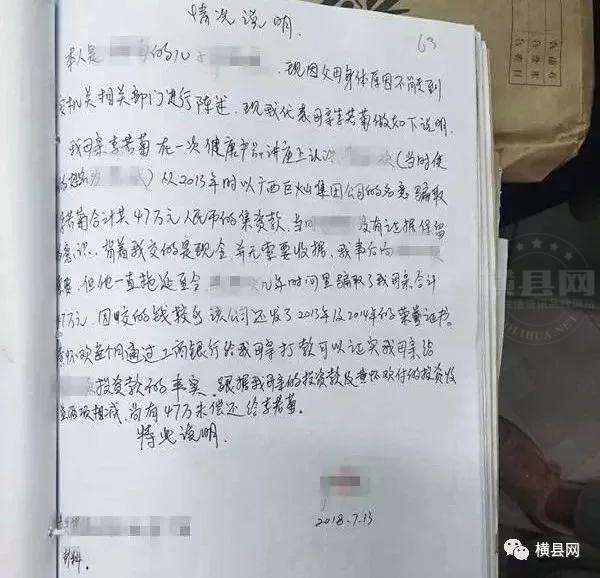 情况说明.
63
本人是 的儿子 , 现因父母身体原因不能到
机关相关部门进行陈述, 现我代表母亲李若菊做如下说明.
我母亲李若菊在一次健康产品讲座上认识 (当时使
) 从2013年时以广西巨灿集团公司的名意骗取
李若菊合计共47万元人民币的集资款, 当时 没有证据保留
意识, 背着我交的是现金, 并无需要收据, 我事后向
但他一直拖延至今, 几年时间里骗取了我母亲合计
47万元, 因收的钱较多该公司还发了2013年及2014年的荣誉证书.
黄怀欢每个月通过工商银行给我母亲打款可以证实我母亲给
投资款的事实, 跟据我母亲的投资款及黄怀欢付的投资收
益两项相减, 尚有47万未偿还给李若菊.
特此说明.
2018.7.13
横县网
生活资讯品牌网站
OLIHUA.NET
横县网